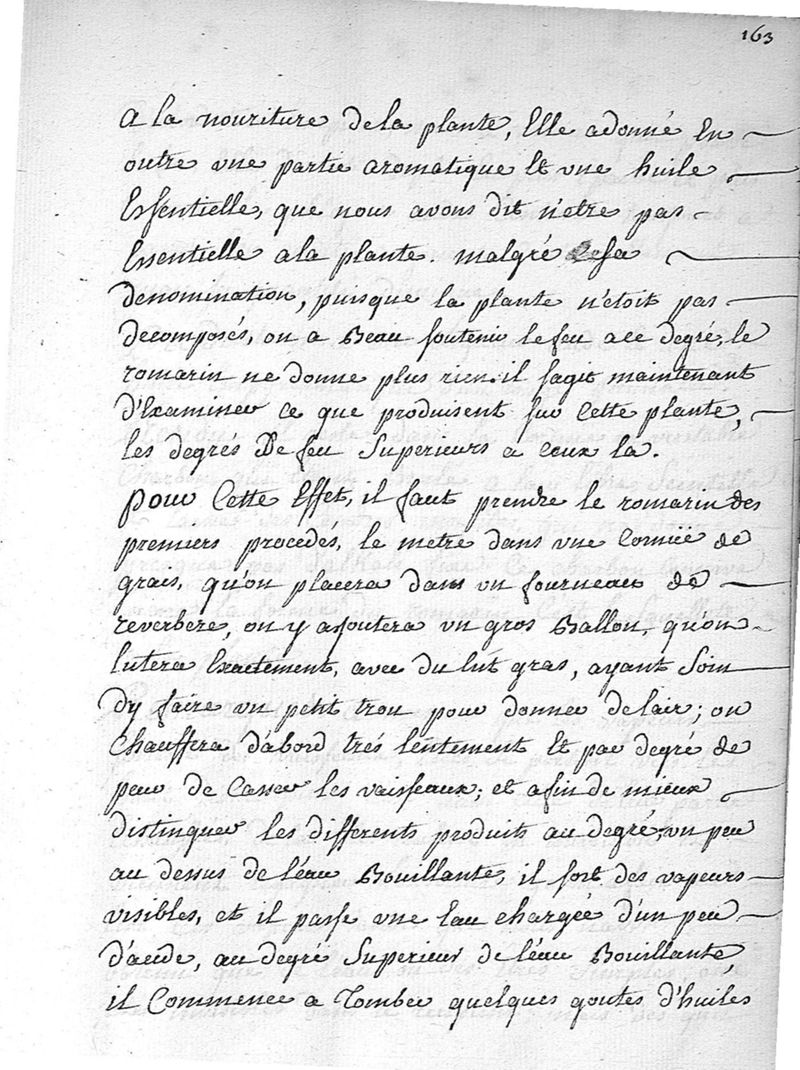 163
a la nouriture dela plante, Elle a donné En
outre vne partie aromatique Et vne huile
Essentielle, que nous avons dit n'etre pas
Essentielle ala plante. malgré sa
denomination, puisque la plante n'etoit pas
decomposés, on a Beau soutenir le feu a ce degré, le
romarin ne donne plus rien. il sagit maintenant
d'Examiner ce que produisent sur Cette plante,
les degrés De feu Superieurs a ceux la.
pour Cette Effet, il faut prendre le romarin des
premiers procedés, le metre dans vne Cornüe de
grais, qu'on placera dans un fourneau de
reverbere, on y ajoutera un gros Ballon, qu'on
lutera Exactement, avec du lut gras, ayant Soin
dy faire un petit trou pour donner de lair; on
Chauffera d'abord trés lentement Et par degré de
peur de Casser les vaisseaux; et afin de mieux
distinguer les differents produits au degré, un peu
au dessus de l'éau Bouillante, il sort des vapeurs
visibles, et il passe vne Eau chargée d'un peu
d'acide, au degré Superieur de l'éau Bouillante
il Commence a Tomber quelques goutes d'huiles